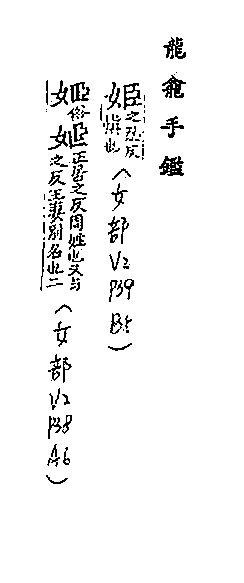 龍龕手鑑
姫之忍反慎也(女部V2P39B5)
姬俗姬正居之反周姓也又与之反王妻別名也二(女部V2P38A6)